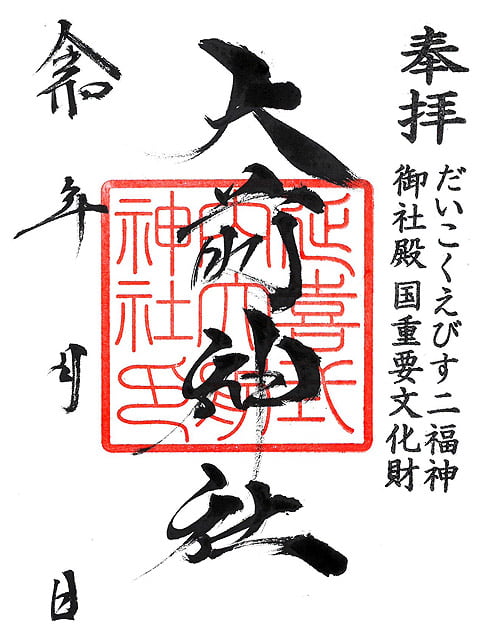 奉拝
だいこくえびす二福神
御社殿国重要文化財
大前神社
延喜式
内大前
神社印
令和 年 月 日